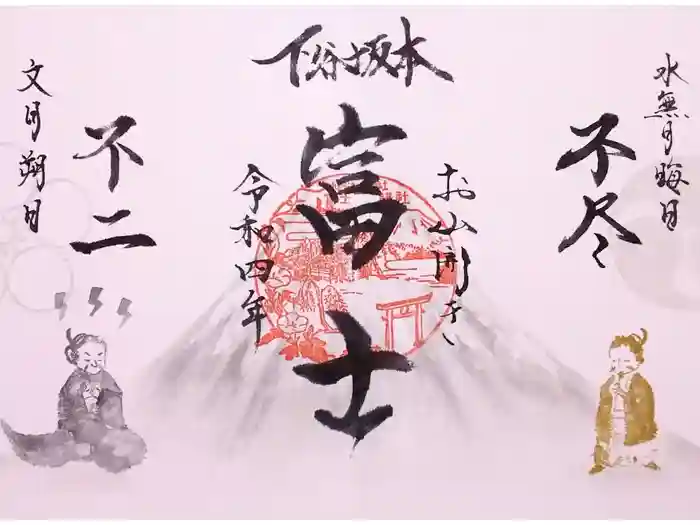 下谷坂本
富士
水無月晦日
不尽
お山開き
令和四年
不二
文月朔日